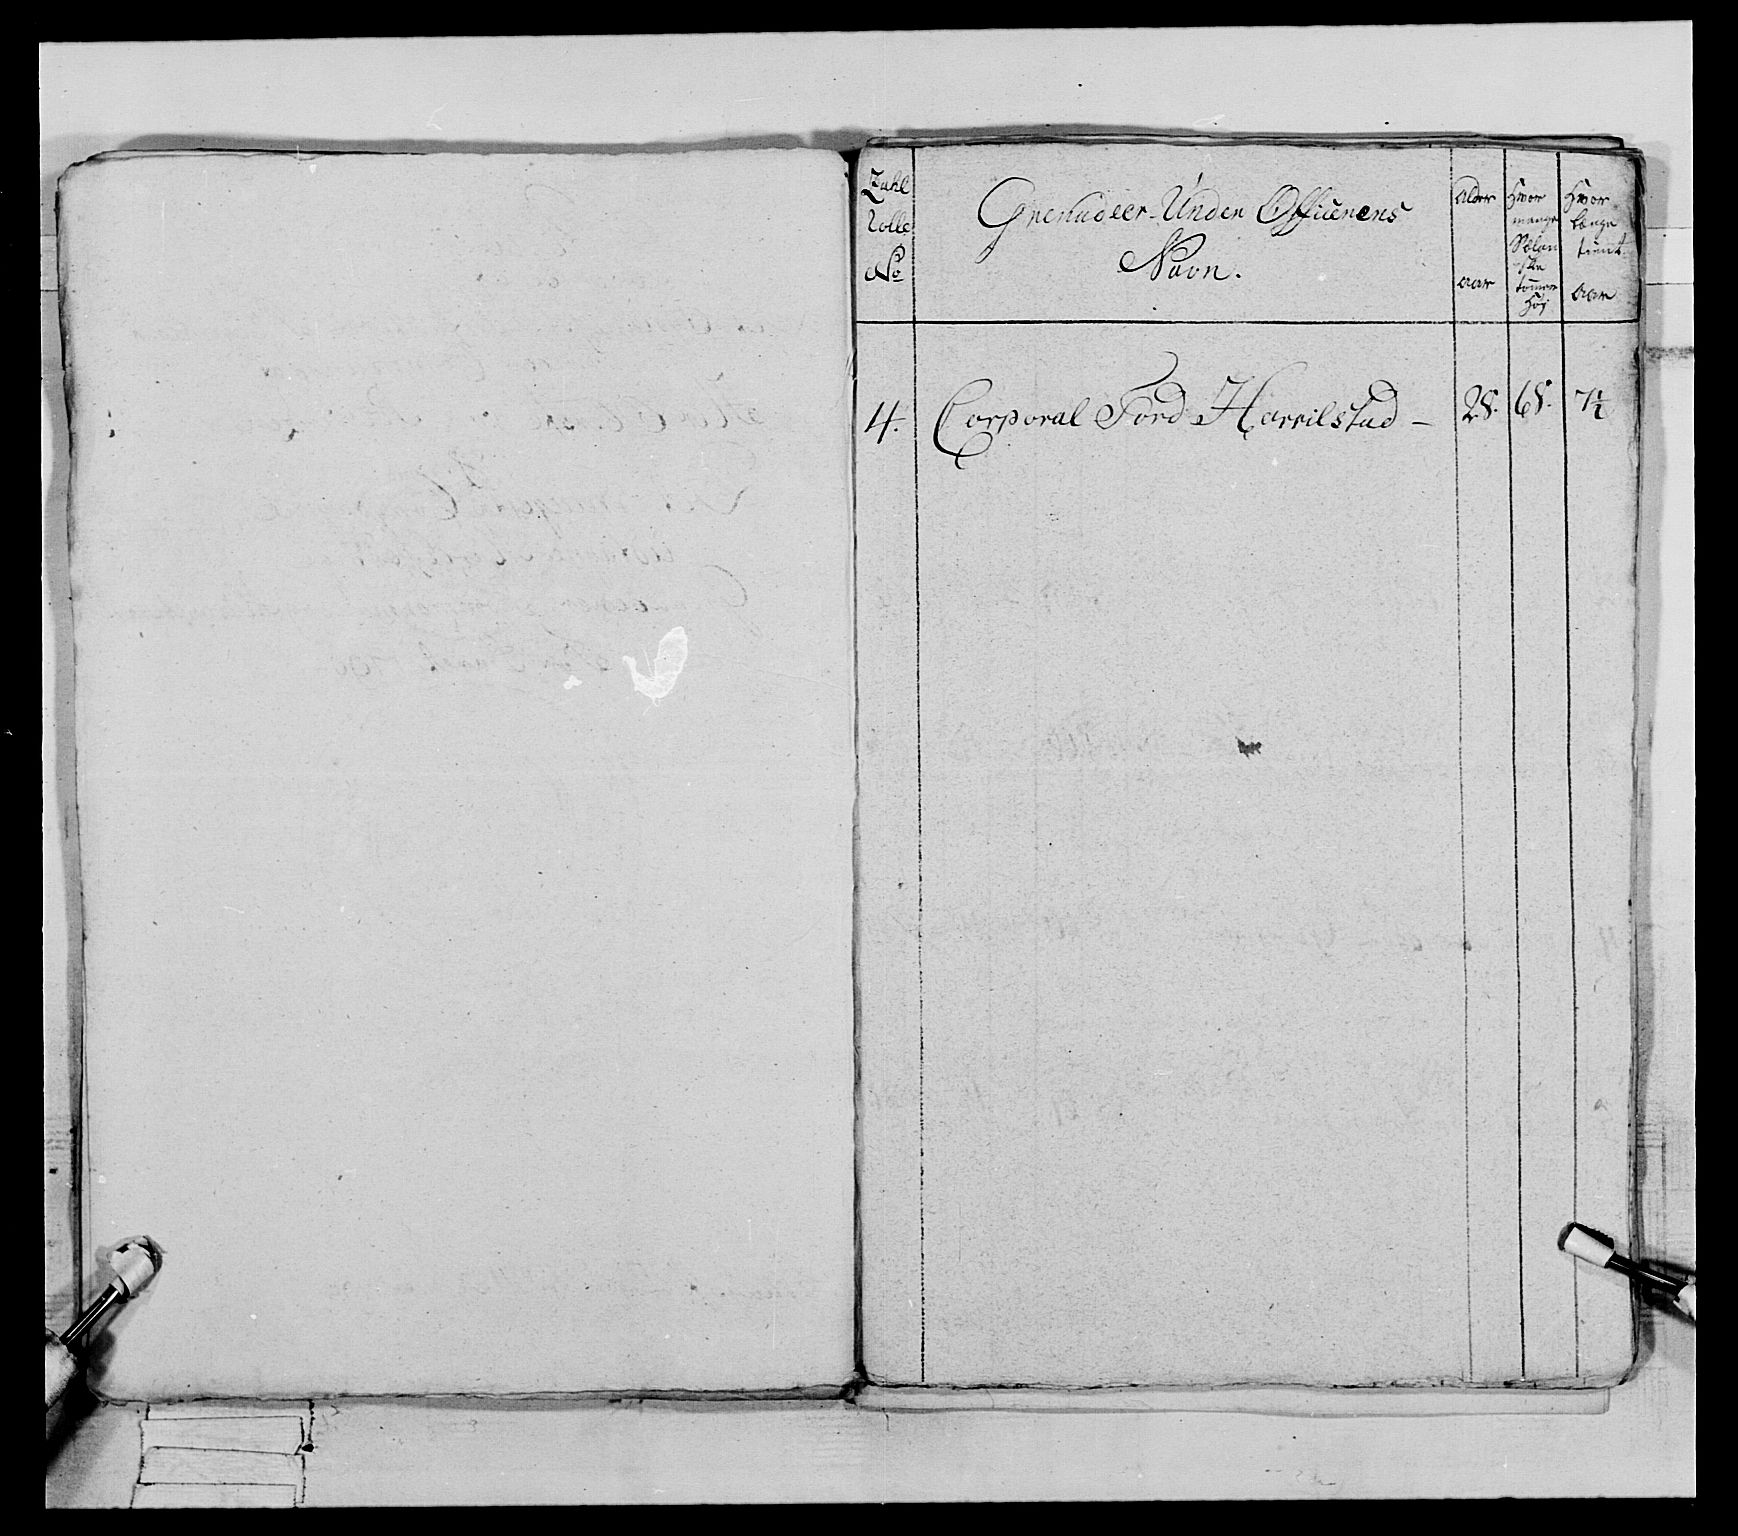 Zahl
Rolle
No
Grenadeer-Under Officerens
Navn.
Alder
aar
Hvor
mange
Sælan-
ske
tommer
høj
Hvor
længe
tient.
aar
4. Corporal Tord Harrilstad — 28. 68. 7½